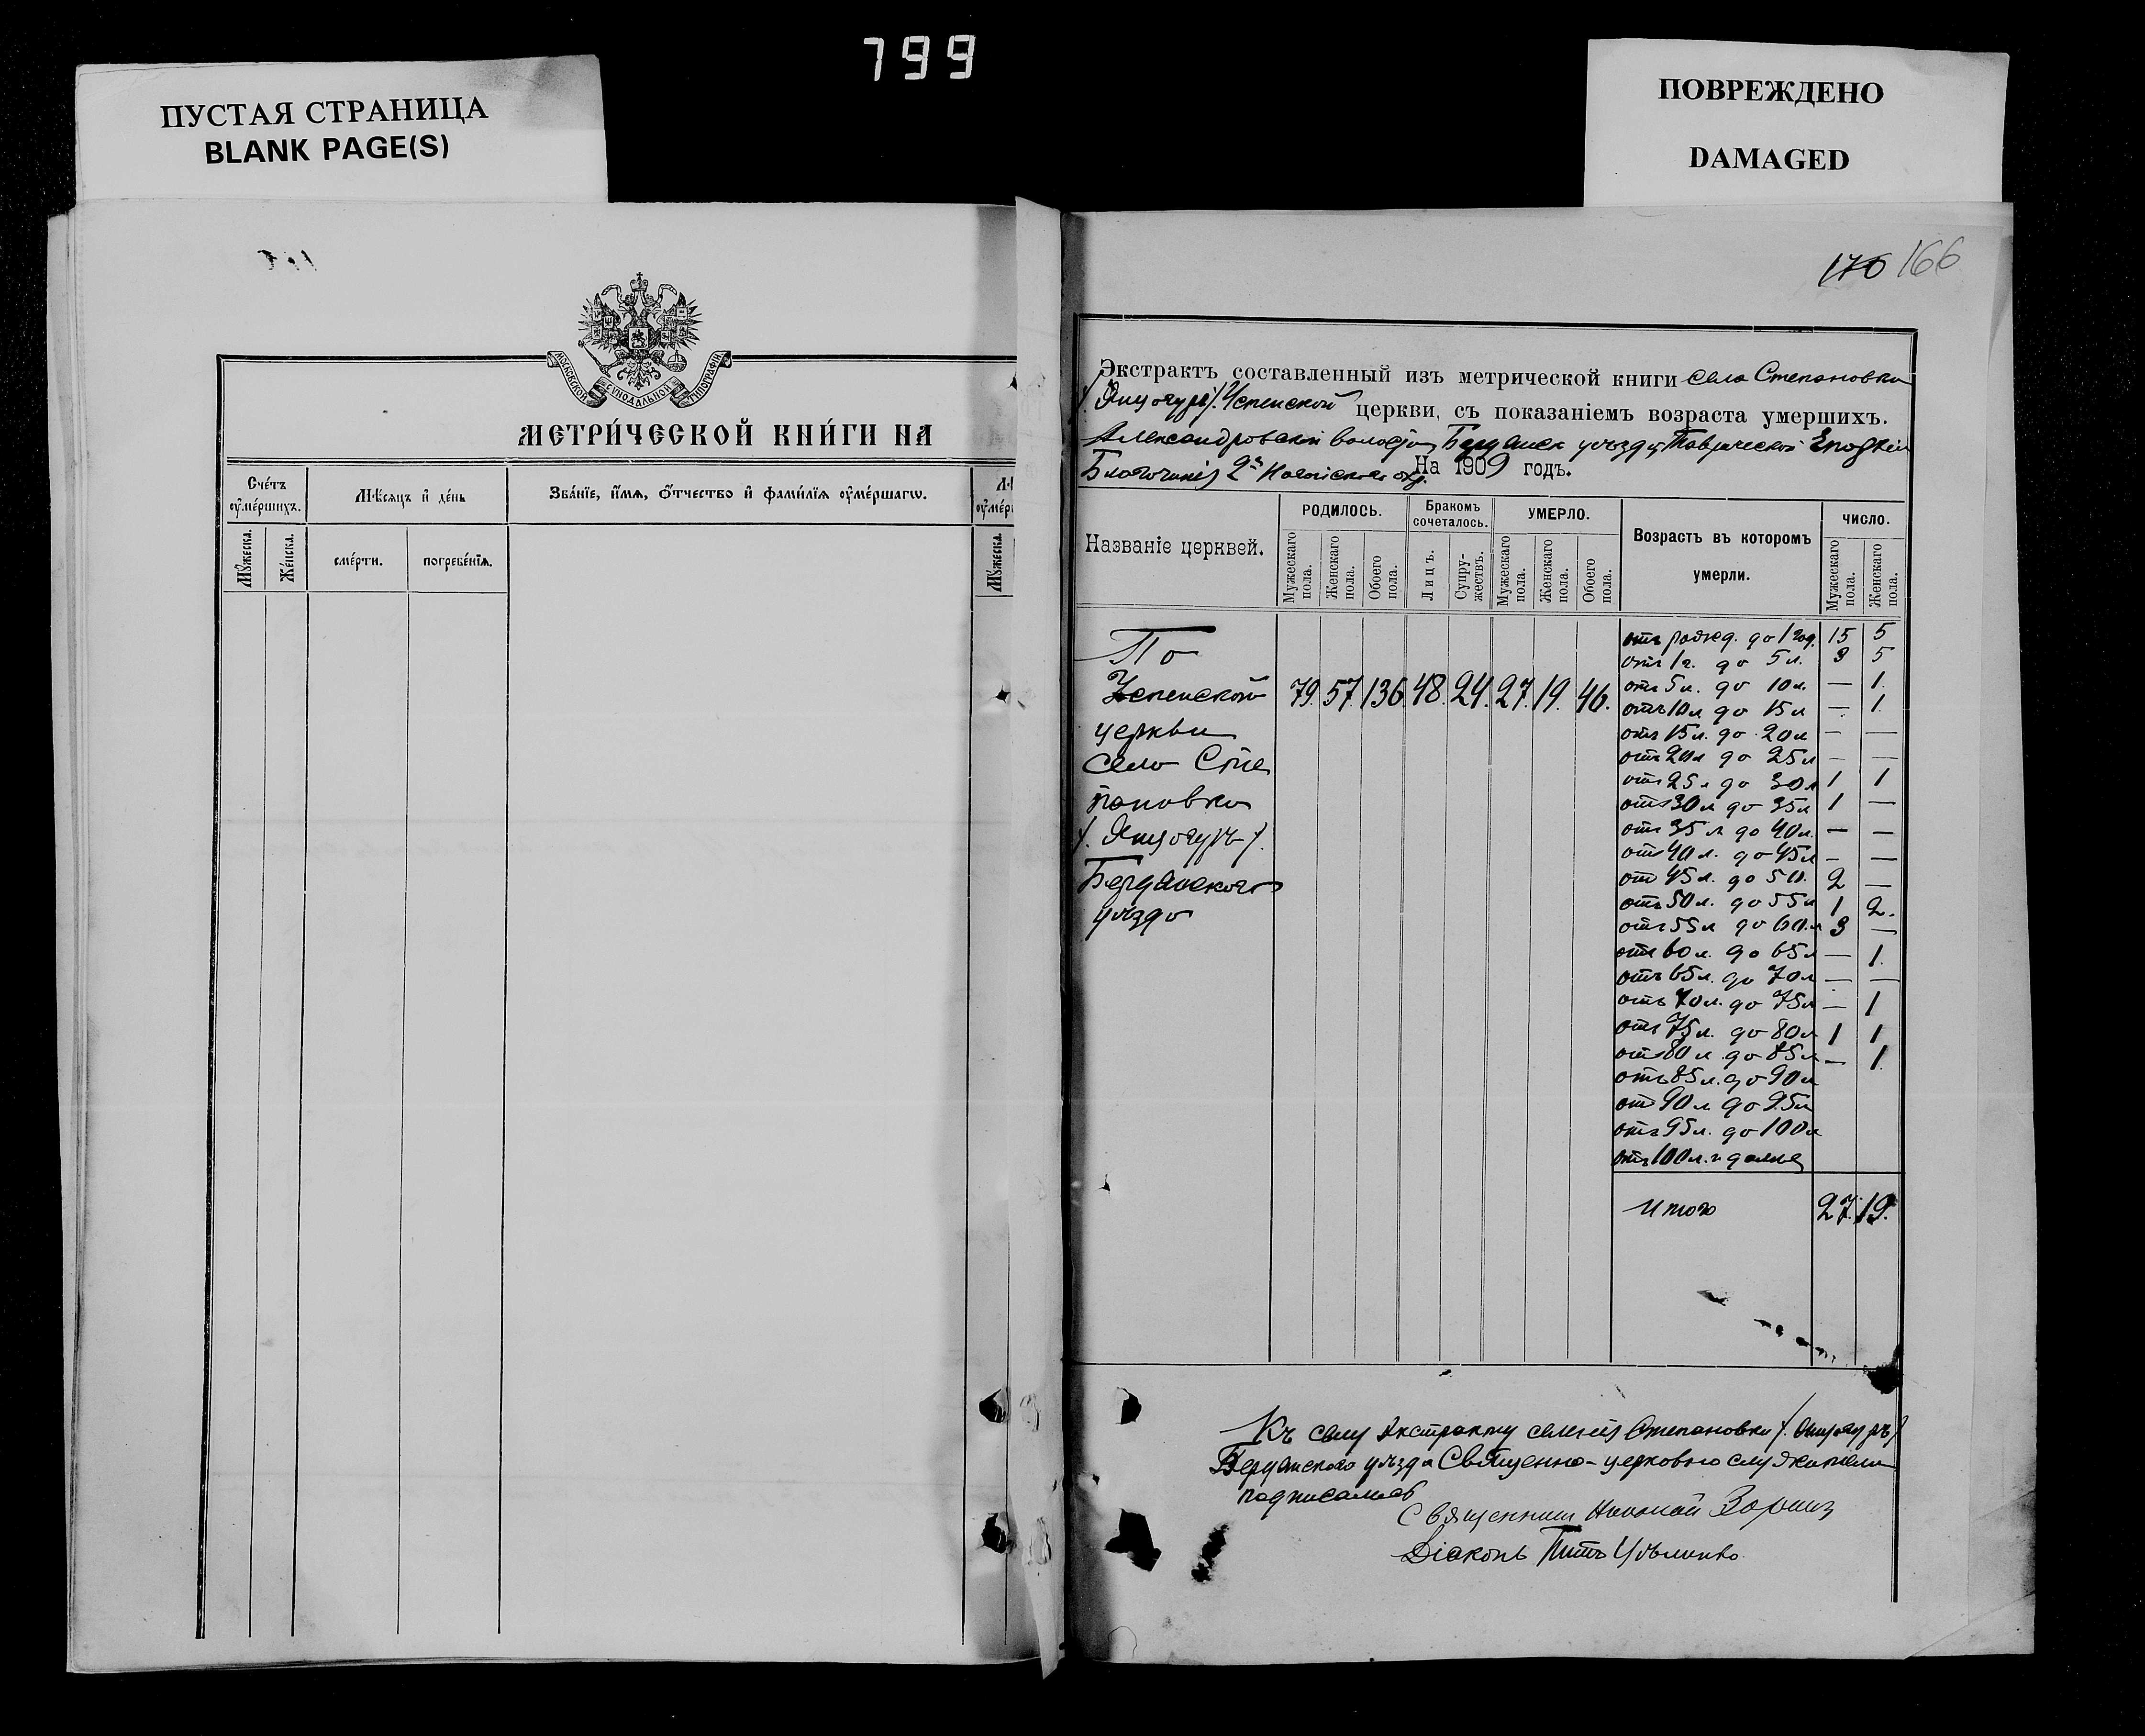 799
ПУСТАЯ СТРАНИЦА
BLANK PAGE(S)
ПОВРЕЖДЕНО
DAMAGED
МОСКОВСКОЙ СѴНОДАЛЬНОЙ ТИПОГРАФІИ
МЕТРИ́ЧЕСКОЙ КНИ́ГИ НА
Сче́тъ оу҆ме́ршихъ.
Мѣсяцъ и҆ де́нь
Зва́нїе, и҆́мѧ, ѻ҆́тчество и҆ фами́лїѧ оу҆ме́ршагѡ.
Мꙋ́жеска.
Же́нска.
сме́рти.
погребе́нїѧ.
Мꙋ́жеска.
170 166
Экстрактъ составленный изъ метрической книги села Степановки
Успенской церкви, съ показаніемъ возраста умершихъ.
Александровской волости, Бердянск уѣзда, Таврической Епархіи
2го Ногайскаго окр. На 1909 годъ.
Названіе церквей.
РОДИЛОСЬ.
Бракомъ сочеталось.
УМЕРЛО.
Возрастъ въ которомъ умерли.
ЧИСЛО.
Мужескаго пола.
Женскаго пола.
Обоего пола.
Лицъ.
Супружествъ.
Мужескаго пола.
Женскаго пола.
Обоего пола.
Мужескаго пола.
Женскаго пола.
По
Успенской 79. 57. 136. 48. 24. 27. 19. 46.
церкви
село Сте
пановки
Бердянского
уѣзда
отъ рожд. до 1 год. 15 5
отъ 1 г. до 5 л. 3 5
отъ 5 л. до 10 л. — 1.
отъ 10 л. до 15 л — 1.
отъ 15 л. до 20 л — —
отъ 20 л до 25 л — —
отъ 25 л до 30 л 1 1
отъ 30 л до 35 л 1 —
отъ 35 л до 40 л. — —
отъ 40 л. до 45 л — —
отъ 45 л. до 50 л. 2 —
отъ 50 л. до 55 л 1 2.
отъ 55 л до 60 л 3 —
отъ 60 л. до 65 л — 1.
отъ 65 л. до 70 л — —
отъ 70 л. до 75 л — 1
отъ 75 л. до 80 л 1 1
отъ 80 л до 85 л — 1.
отъ 85 л. до 90 л
отъ 90 л до 95 л
отъ 95 л. до 100 л
отъ 100 л. и далее
Итого 27. 19.
Къ сему экстракту Степановки
Бердянского уѣзда Священно-церковно служители
подписались
Священникъ Николай
Діаконъ Титъ